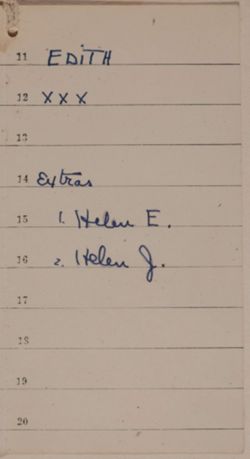 11 EDITH
12 X X X
13
14 Extras
15 1. Helen E.
16 2. Helen J.
17
18
19
20